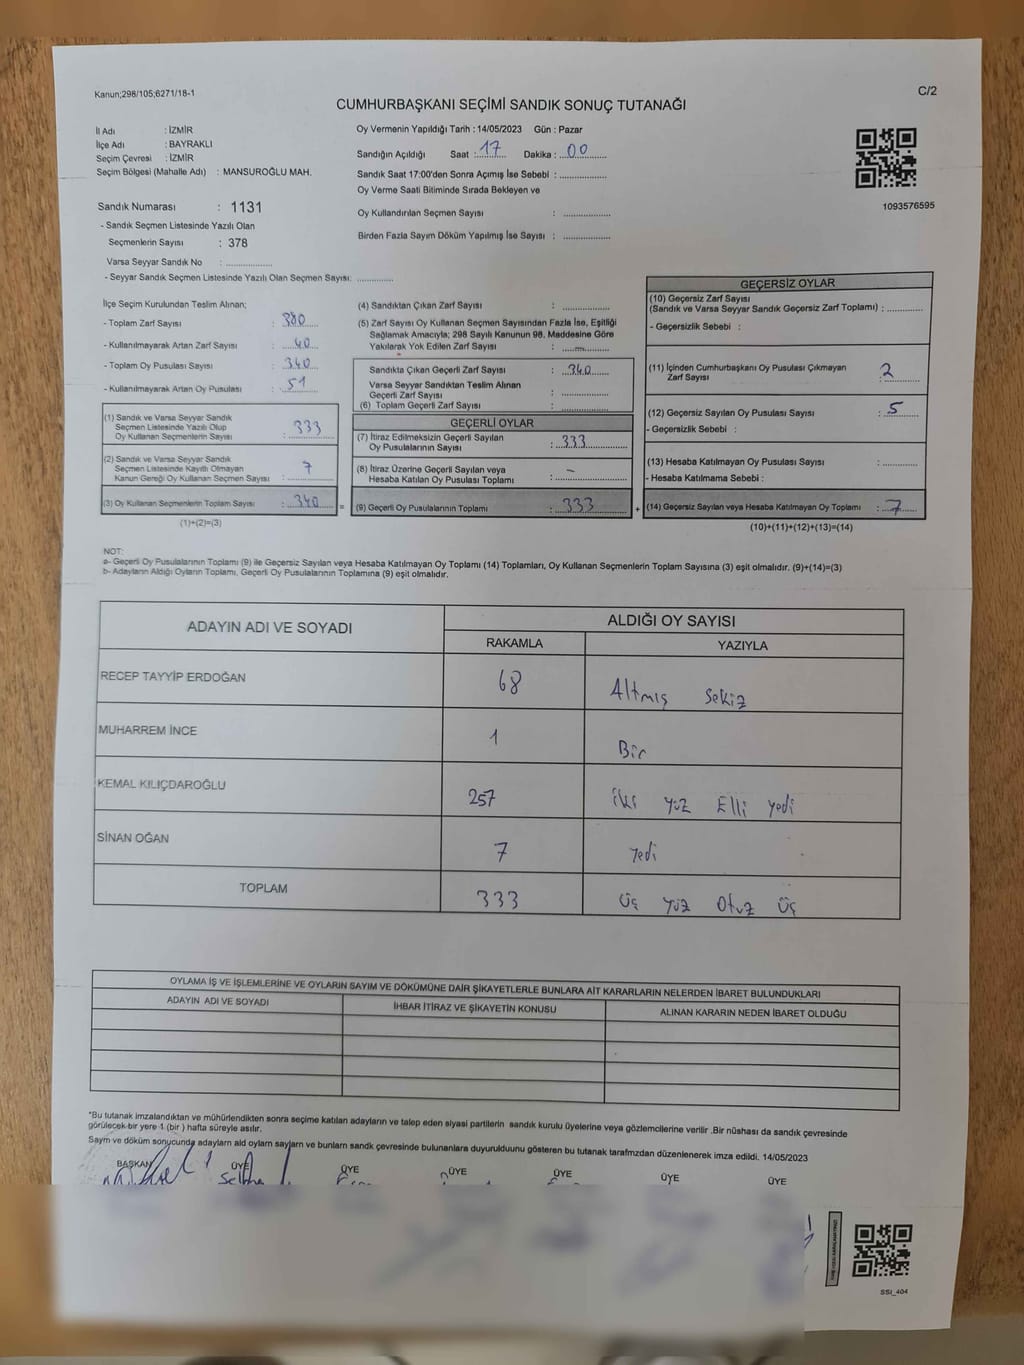 Kanun;298/105;6271/18-1
C/2
CUMHURBAŞKANI SEÇİMİ SANDIK SONUÇ TUTANAĞI
İl Adı : İZMİR
İlçe Adı : BAYRAKLI
Seçim Çevresi : İZMİR
Seçim Bölgesi (Mahalle Adı) : MANSUROĞLU MAH.
Oy Vermenin Yapıldığı Tarih : 14/05/2023 Gün : Pazar
Sandığın Açıldığı Saat : 17 Dakika : 00
Sandık Saat 17:00'den Sonra Açımış İse Sebebi :
Oy Verme Saati Bitiminde Sırada Bekleyen ve
Oy Kullandırılan Seçmen Sayısı :
Birden Fazla Sayım Döküm Yapılmış İse Sayısı :
1093576595
Sandık Numarası : 1131
- Sandık Seçmen Listesinde Yazılı Olan
Seçmenlerin Sayısı : 378
Varsa Seyyar Sandık No :
- Seyyar Sandık Seçmen Listesinde Yazılı Olan Seçmen Sayısı:
İlçe Seçim Kurulundan Teslim Alınan;
- Toplam Zarf Sayısı : 380
- Kullanılmayarak Artan Zarf Sayısı : 40
- Toplam Oy Pusulası Sayısı : 340
- Kullanılmayarak Artan Oy Pusulası : 51
(1) Sandık ve Varsa Seyyar Sandık
Seçmen Listesinde Yazılı Olup
Oy Kullanan Seçmenlerin Sayısı : 333
(2) Sandık ve Varsa Seyyar Sandık
Seçmen Listesinde Kayıtlı Olmayan
Kanun Gereği Oy Kullanan Seçmen Sayısı : 7
(3) Oy Kullanan Seçmenlerin Toplam Sayısı : 340 =
(1)+(2)=(3)
(4) Sandıktan Çıkan Zarf Sayısı :
(5) Zarf Sayısı Oy Kullanan Seçmen Sayısından Fazla İse, Eşitliği
Sağlamak Amacıyla; 298 Sayılı Kanunun 98. Maddesine Göre
Yakılarak Yok Edilen Zarf Sayısı : —
Sandıkta Çıkan Geçerli Zarf Sayısı : 340
Varsa Seyyar Sandıktan Teslim Alınan
Geçerli Zarf Sayısı :
(6) Toplam Geçerli Zarf Sayısı :
GEÇERLİ OYLAR
(7) İtiraz Edilmeksizin Geçerli Sayılan
Oy Pusulalarının Sayısı : 333
(8) İtiraz Üzerine Geçerli Sayılan veya
Hesaba Katılan Oy Pusulası Toplamı : —
(9) Geçerli Oy Pusulalarının Toplamı : 333 +
GEÇERSİZ OYLAR
(10) Geçersiz Zarf Sayısı
(Sandık ve Varsa Seyyar Sandık Geçersiz Zarf Toplamı) :
- Geçersizlik Sebebi :
(11) İçinden Cumhurbaşkanı Oy Pusulası Çıkmayan
Zarf Sayısı : 2
(12) Geçersiz Sayılan Oy Pusulası Sayısı : 5
- Geçersizlik Sebebi :
(13) Hesaba Katılmayan Oy Pusulası Sayısı :
- Hesaba Katılmama Sebebi :
(14) Geçersiz Sayılan veya Hesaba Katılmayan Oy Toplamı : 7
(10)+(11)+(12)+(13)=(14)
NOT:
a- Geçerli Oy Pusulalarının Toplamı (9) ile Geçersiz Sayılan veya Hesaba Katılmayan Oy Toplamı (14) Toplamları, Oy Kullanan Seçmenlerin Toplam Sayısına (3) eşit olmalıdır. (9)+(14)=(3)
b- Adayların Aldığı Oyların Toplamı, Geçerli Oy Pusulalarının Toplamına (9) eşit olmalıdır.
ADAYIN ADI VE SOYADI ALDIĞI OY SAYISI
RAKAMLA YAZIYLA
RECEP TAYYİP ERDOĞAN 68 Altmış Sekiz
MUHARREM İNCE 1 Bir
KEMAL KILIÇDAROĞLU 257 iki yüz Elli yedi
SİNAN OĞAN 7 Yedi
TOPLAM 333 Üç yüz Otuz Üç
OYLAMA İŞ VE İŞLEMLERİNE VE OYLARIN SAYIM VE DÖKÜMÜNE DAİR ŞİKAYETLERLE BUNLARA AİT KARARLARIN NELERDEN İBARET BULUNDUKLARI
ADAYIN ADI VE SOYADI İHBAR İTİRAZ VE ŞİKAYETİN KONUSU ALINAN KARARIN NEDEN İBARET OLDUĞU
*Bu tutanak imzalandıktan ve mühürlendikten sonra seçime katılan adayların ve talep eden siyasi partilerin sandık kurulu üyelerine veya gözlemcilerine verilir .Bir nüshası da sandık çevresinde
görülecek bir yere 1 (bir ) hafta süreyle asılır.
Sayım ve döküm sonucunda adayların aldı oyların sayıları ve bunların sandk çevresinde bulunanlara duyurulduunu gösteren bu tutanak tarafmzdan düzenlenerek imza edildi. 14/05/2023
BAŞKAN ÜYE ÜYE ÜYE ÜYE ÜYE ÜYE
SSI_404